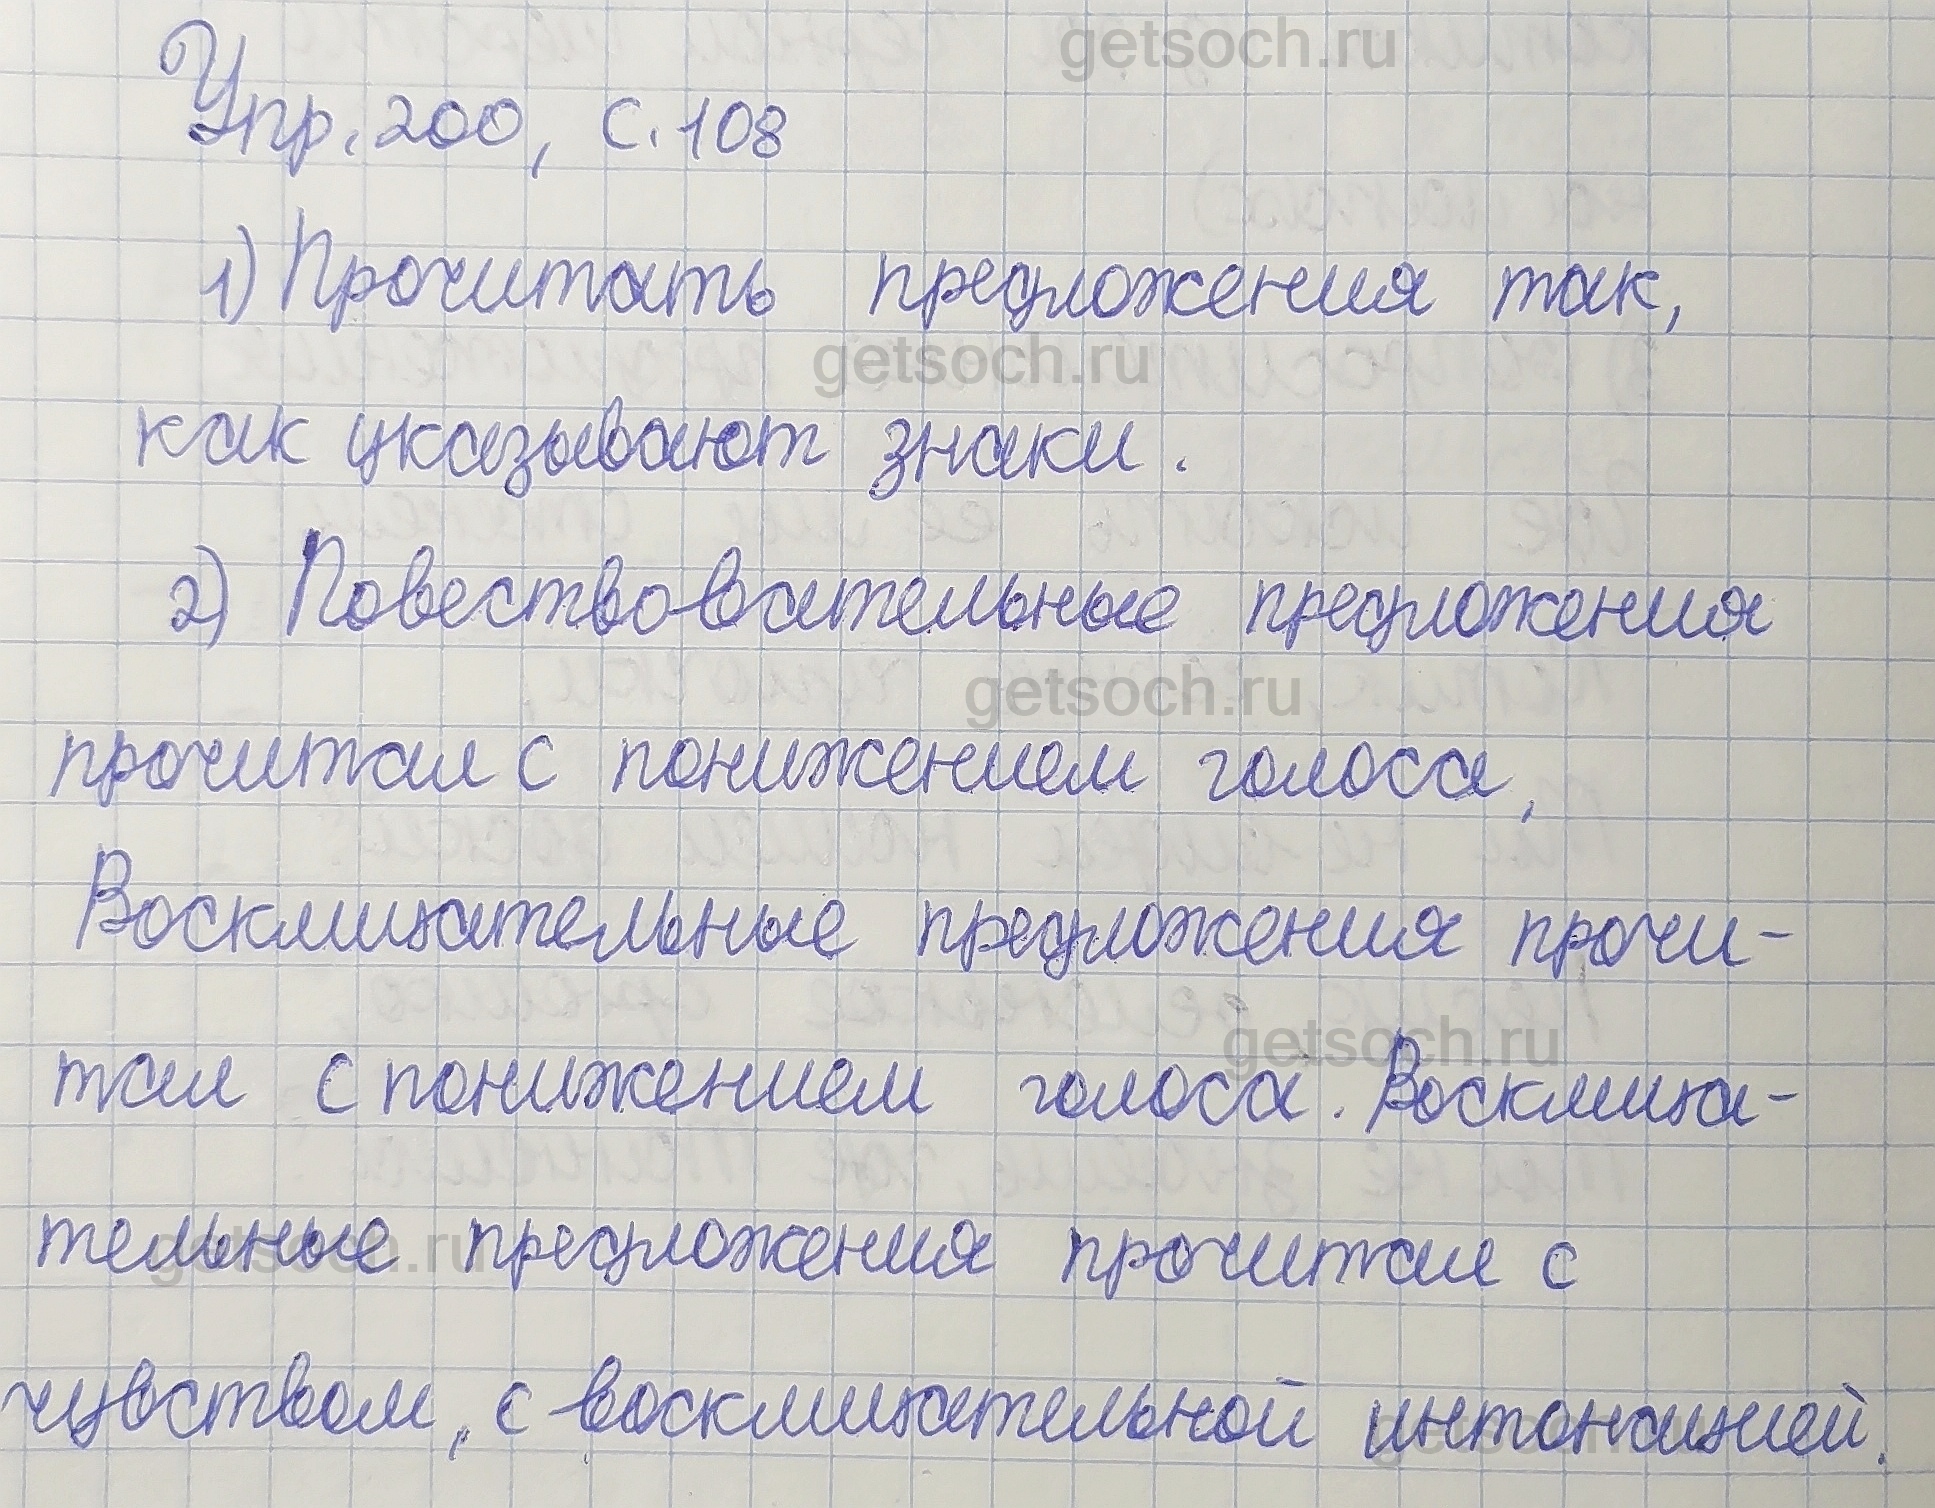 getsoch.ru
Упр. 200, с. 108
1) Прочитать предложения так,
getsoch.ru
как указывают знаки.
2) Повествовательные предложения
getsoch.ru
прочитал с понижением голоса,
Восклицательные предложения прочи-
getsoch.ru
тал с понижением голоса. Восклица-
тельные предложения прочитал с
getsoch.ru
чувством, с восклицательной интонацией.
getsoch.ru